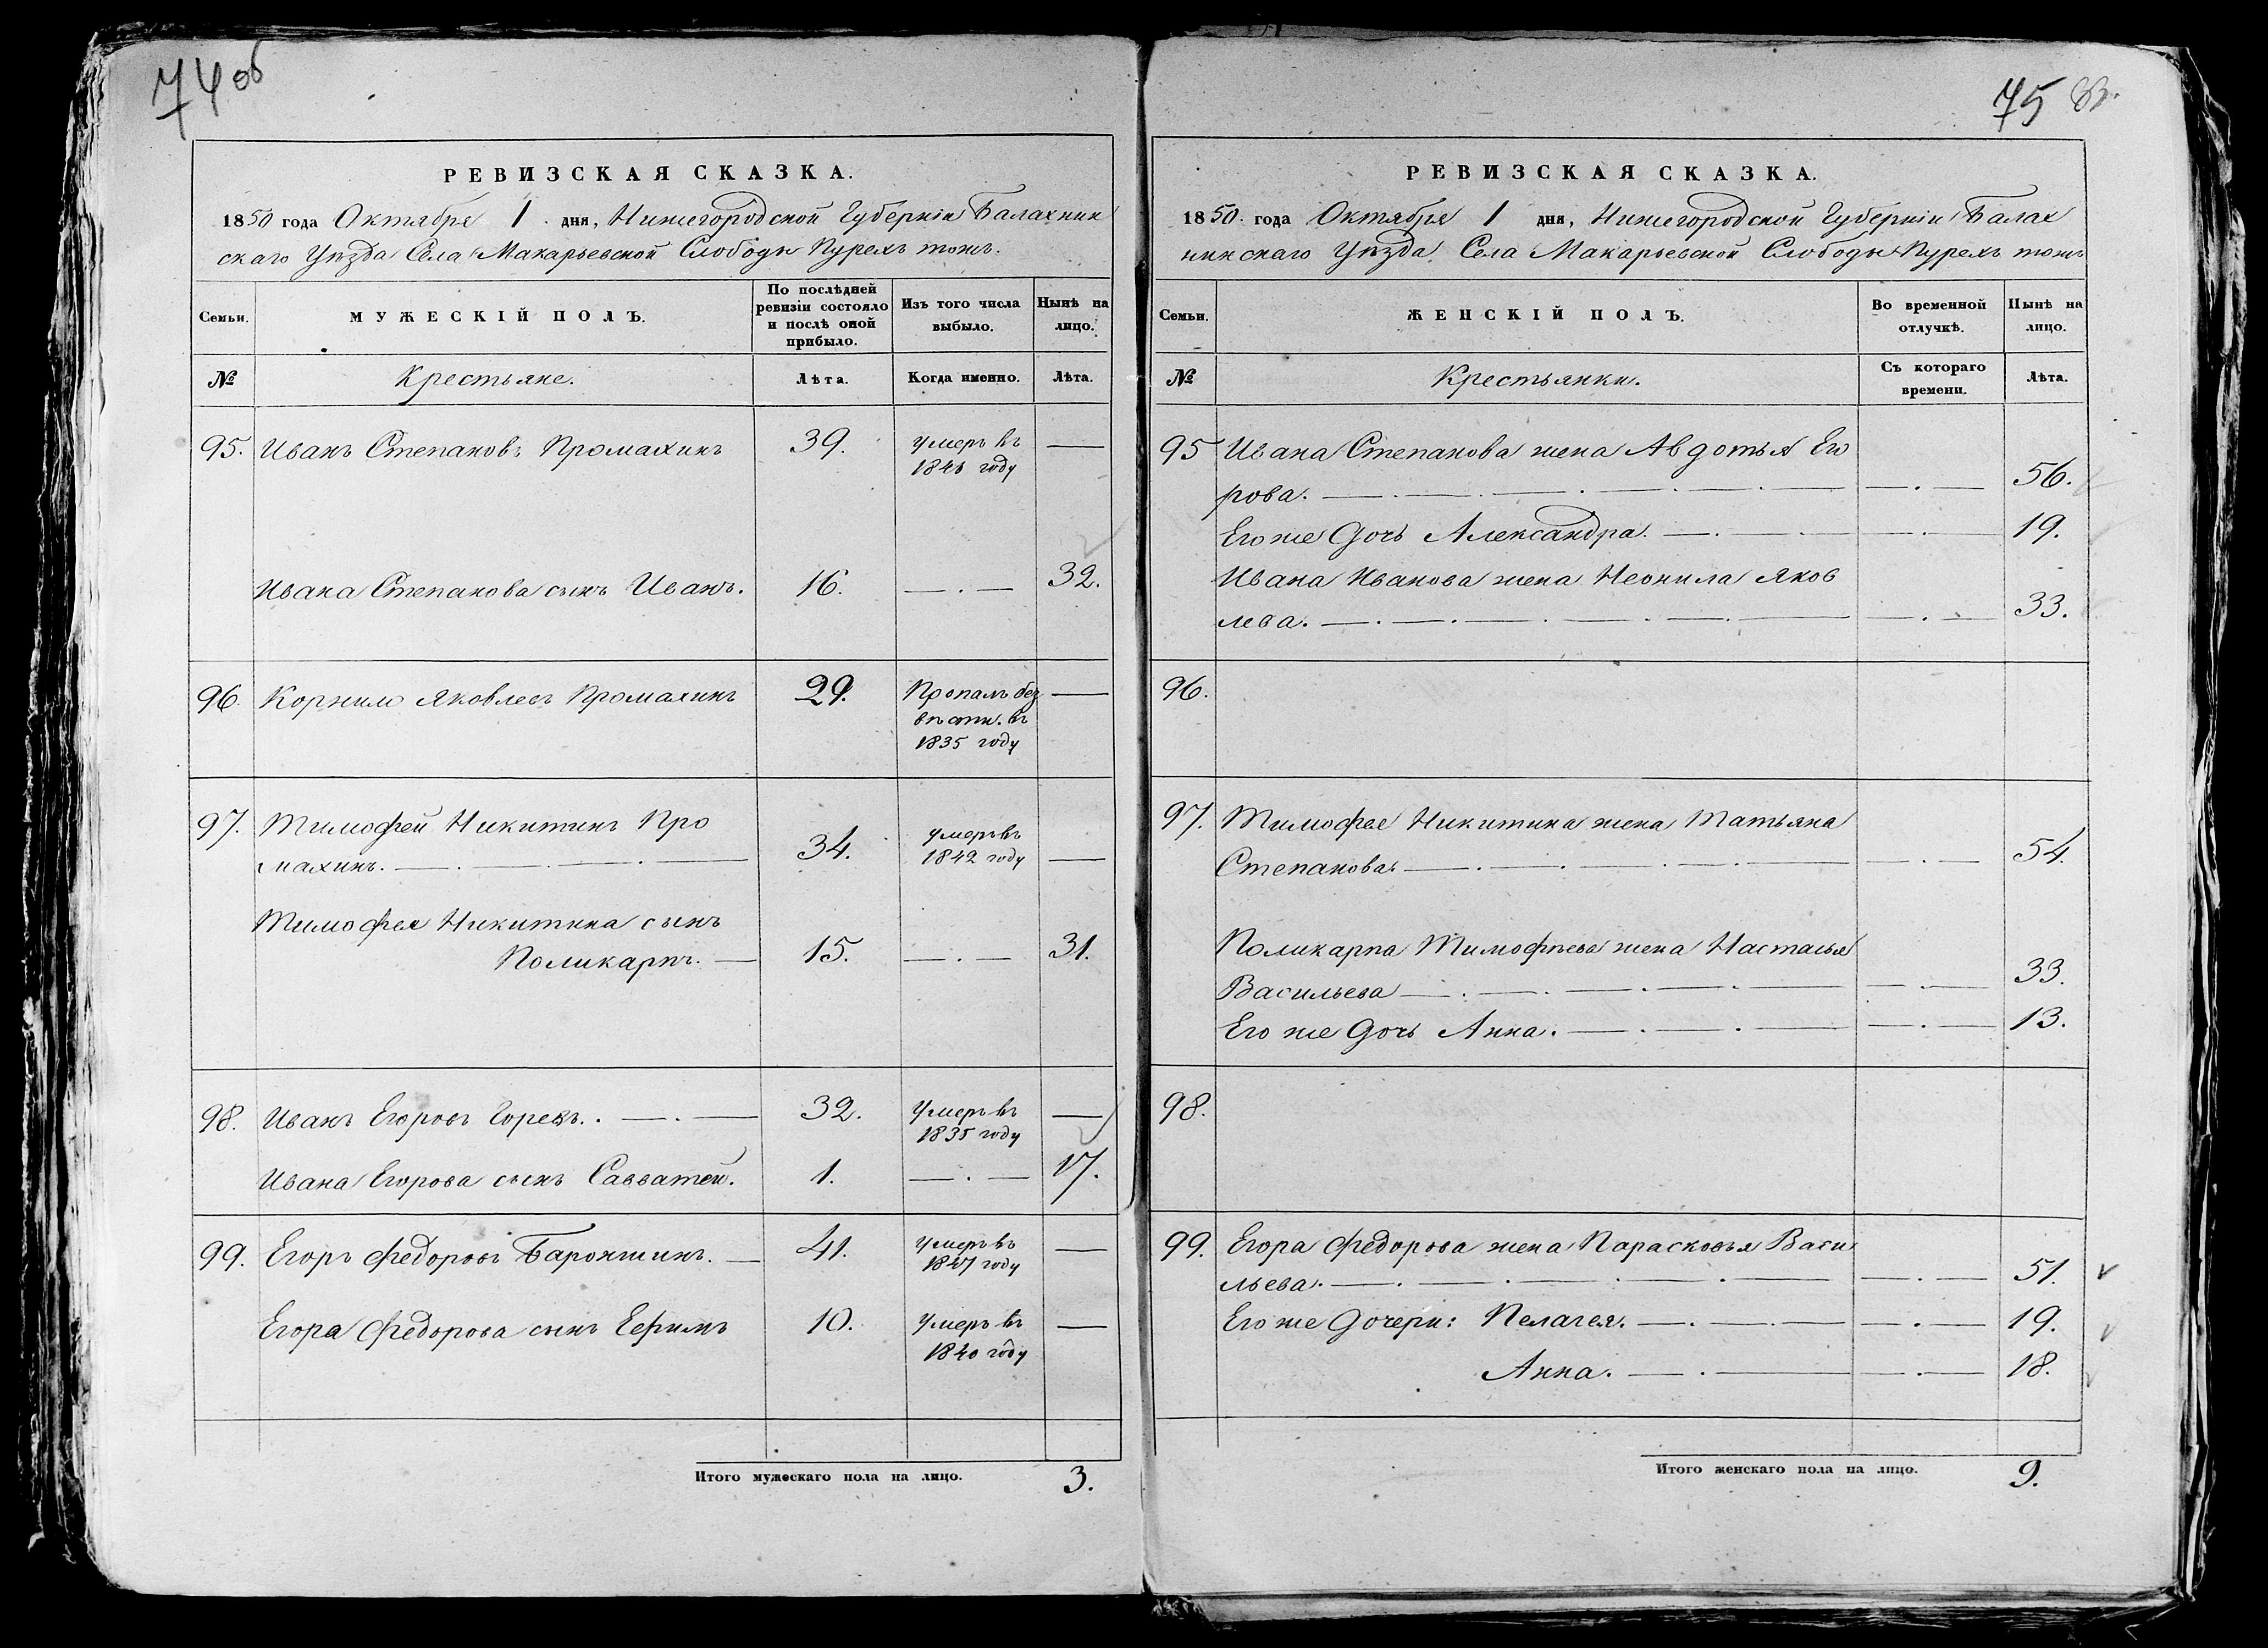 74 об
РЕВИЗСКАЯ СКАЗКА.
1850 года Октября 1 дня, Нижегородской Губерніи Балахнин
скаго Уѣзда Села Макарьевской Слободы Пурехъ тожъ.
Семьи.
МУЖЕСКІЙ ПОЛЪ.
По послѣдней ревизіи состояло и послѣ оной прибыло.
Изъ того числа выбыло.
Нынѣ на лицо.
№
Крестьяне.
Лѣта.
Когда именно.
Лѣта.
95. Иванъ Степановъ Промахинъ 39. умеръ въ —
году
Ивана Степанова сынъ Иванъ. 16. — . — 32.
96. Корнило Яковлевъ Промахинъ 29. Пропалъ без —
вѣсти. въ
1835 году
97. Тимофей Никитинъ Про
махинъ. — 34. умеръ въ
1842 году —
Тимофея Никитина сынъ
Поликарпъ. — 15. — . — 31.
98. Иванъ Егоровъ 32. Умеръ въ —
1835 году
Ивана Егорова сынъ Савватей. 1. — . — 17.
99. Егоръ Федоровъ Бароншинъ. — 41. Умеръ въ —
1847 году
Егора Федорова сынъ Ефимъ 10. Умеръ въ —
1840 году
Итого мужескаго пола на лицо. 3.
75
РЕВИЗСКАЯ СКАЗКА.
1850 года Октября 1 дня, Нижегородской Губерніи Балах
нинскаго Уѣзда Села Макарьевской Слободы Пурехъ тожъ
Семьи.
ЖЕНСКІЙ ПОЛЪ.
Во временной отлучкѣ.
Нынѣ на лицо.
№
Крестьянки.
Съ котораго времени.
Лѣта.
95 Ивана Степанова жена Авдотья Его
рова. — . — 56.
Его же дочь Александра. — . — 19.
Ивана Иванова жена Неонила Яков
лева. — . — 33.
96.
97. Тимофея Никитина жена Татьяна
Степанова. — . — 54.
Поликарпа Тимофѣева жена Настасья
Васильева — . — 33.
Его же дочь Анна. — . — 13.
98.
99. Егора Федорова жена Парасковья Васи
льева. — . — 51.
Его же дочери: Пелагея. — . — 19.
Анна. — . — 18.
Итого женскаго пола на лицо. 9.